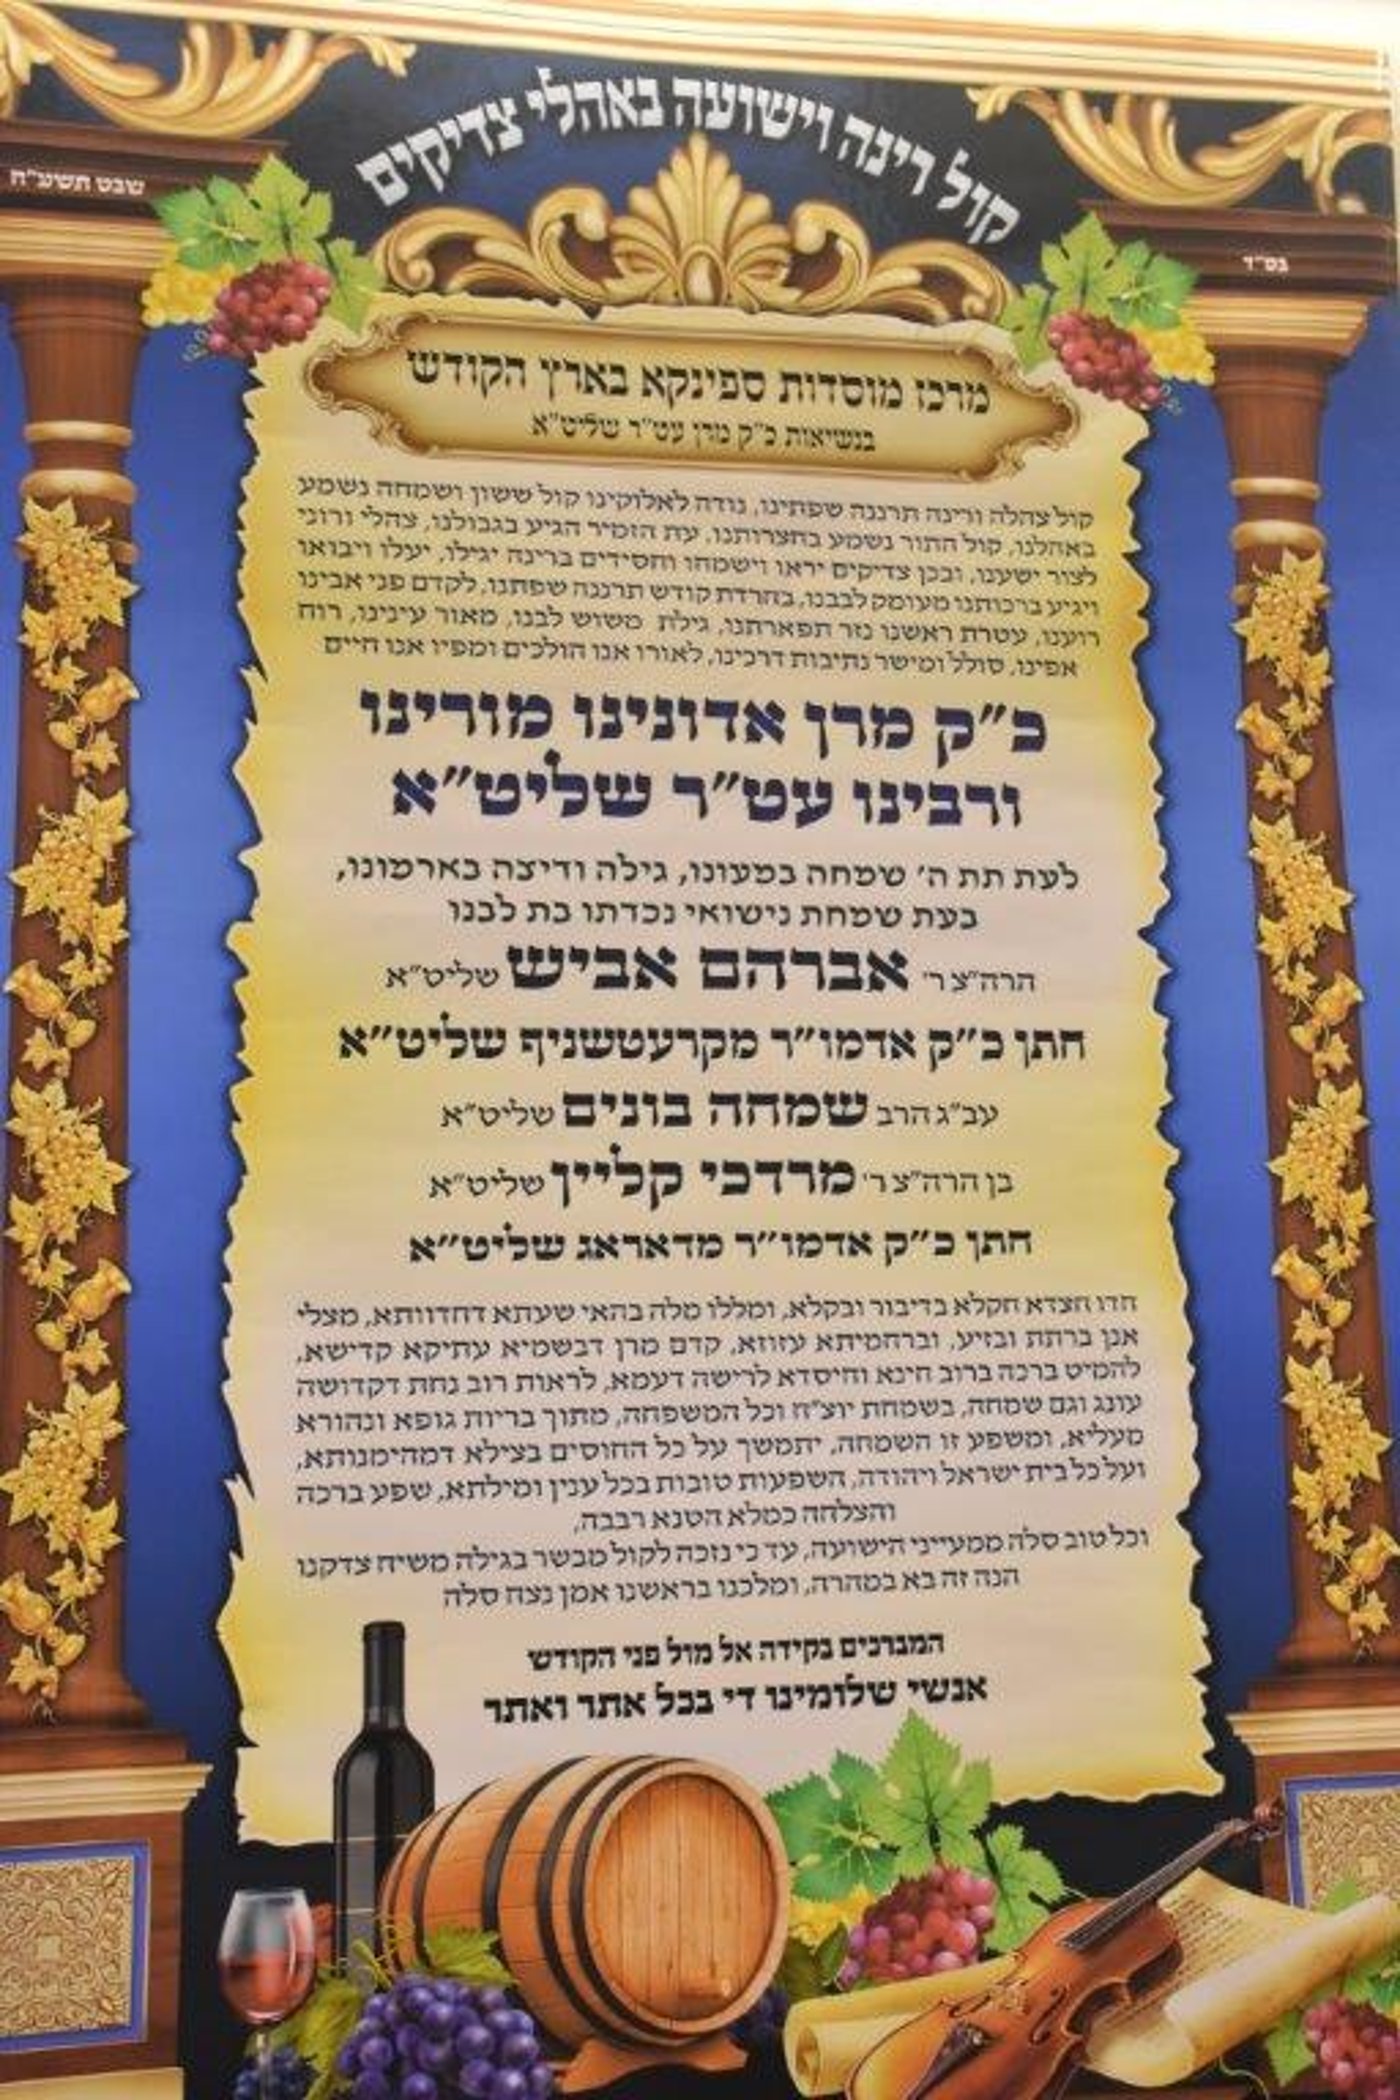 קול רינה וישועה באהלי צדיקים
בס"ד
שבט תשע"ח
מרכז מוסדות ספינקא בארץ הקודש
בנשיאות כ"ק מרן עט"ר שליט"א
קול צהלה ורינה תרננה שפתינו, נודה לאלוקינו קול ששון ושמחה נשמע
באהלנו, קול התור נשמע בחצרותנו, עת הזמיר הגיע בגבולנו, צהלי ורוני
לצור ישענו, ובכן צדיקים יראו וישמחו וחסידים ברינה יגילו, יעלו ויבואו
ויגיע ברכותנו מעומק לבבנו, בחרדת קודש תרננה שפתנו, לקדם פני אבינו
רוענו, עטרת ראשנו נזר תפארתנו, גילת משוש לבנו, מאור עינינו, רוח
אפינו, סולל ומישר נתיבות דרכינו, לאורו אנו הולכים ומפיו אנו חיים
כ"ק מרן אדונינו מורינו
ורבינו עט"ר שליט"א
לעת תת ה' שמחה במעונו, גילה ודיצה בארמונו,
בעת שמחת נישואי נכדתו בת לבנו
הרה"צ ר' אברהם אביש שליט"א
חתן כ"ק אדמו"ר מקרעטשניף שליט"א
עב"ג הרב שמחה בונים שליט"א
בן הרה"צ ר' מרדכי קליין שליט"א
חתן כ"ק אדמו"ר מדאראג שליט"א
חדו חצדא חקלא בדיבור ובקלא, ומללו מלה בהאי שעתא דחדוותא, מצלי
אנן ברתת ובזיע, וברחמיתא עזוזא, קדם מרן דבשמיא עתיקא קדישא,
להמיט ברכה ברוב חינא וחיסדא לרישה דעמא, לראות רוב נחת דקדושה
עונג וגם שמחה, בשמחת יוצ"ח וכל המשפחה, מתוך בריות גופא ונהורא
מעליא, ומשפע זו השמחה, יתמשך על כל החוסים בצילא דמהימנותא,
ועל כל בית ישראל ויהודה, השפעות טובות בכל ענין ומילתא, שפע ברכה
והצלחה כמלא הטנא רבבה,
וכל טוב סלה ממעייני הישועה, עד כי נזכה לקול מבשר בגילה משיח צדקנו
הנה זה בא במהרה, ומלכנו בראשנו אמן נצח סלה
המברכים בקידה אל מול פני הקודש
אנשי שלומינו די בכל אתר ואתר